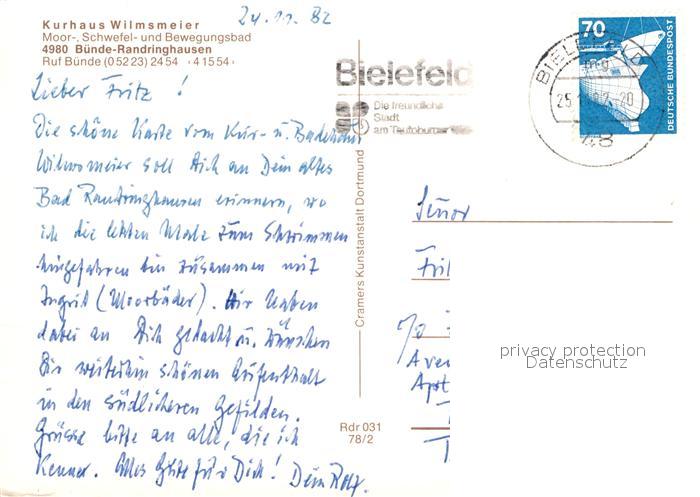 24.11.82
Kurhaus Wilmsmeier
Moor-, Schwefel- und Bewegungsbad
4980 Bünde-Randringhausen
Ruf Bünde (05223) 2454 ‹41554›
Lieber Fritz!
Die schöne Karte vom Kur- u. Badehaus
Wilmsmeier soll Dich an Dein altes
Bad Randringhausen erinnern, wo
ich die letzten Male zum Schwimmen
hingefahren bin zusammen mit
Ingrid (Moorbäder). Wir haben
dabei an Dich gedacht u. wünschen
Dir weiterhin schönen Aufenthalt
in den südlicheren Gefilden.
Grüsse bitte an alle, die ich
kenne. Alles Gute für Dich! Dein Rolf.
Cramers Kunstanstalt Dortmund
Rdr 031
78/2
Bielefeld
Die freundliche
Stadt
am Teutoburger
BIELEF
25.
20
48
70
DEUTSCHE BUNDESPOST
Señor
Fri
Ave
Apt
privacy protection
Datenschutz